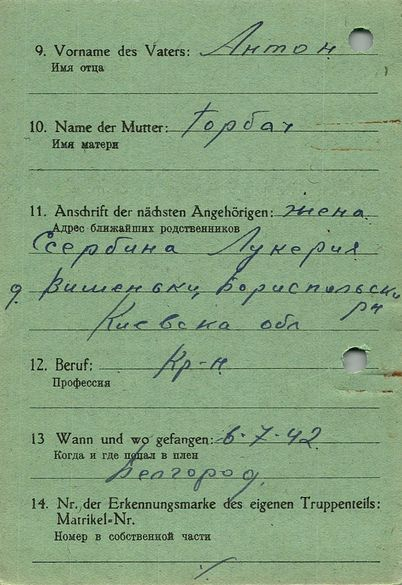 9. Vorname des Vaters: Антон
Имя отца
10. Name der Mutter: Горбач
Имя матери
11. Anschrift der nächsten Angehörigen: жена
Адрес ближайших родственников
Сербина Лукерия
д. Вишеньки, Бориспольски
рн
Киевска обл
12. Beruf: Кр-н
Профессия
13 Wann und wo gefangen: 6-7-42
Когда и где попал в плен
Белгород
14. Nr. der Erkennungsmarke des eigenen Truppenteils:
Matrikel-Nr.
Номер в собственной части